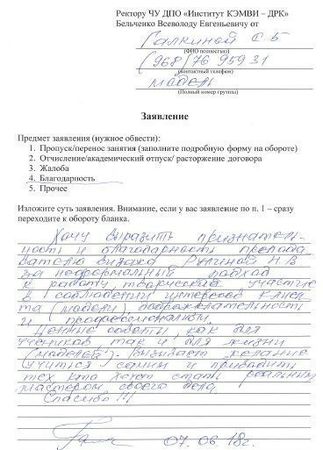 Ректору ЧУ ДПО «Институт КЭМВИ – ДРК»
Бельченко Всеволоду Евгеньевичу от
Галкиной С Б
(ФИО полностью)
(968) 76 959 31
(контактный телефон)
модели
(Полный номер группы)
Заявление
Предмет заявления (нужное обвести):
1. Пропуск/перенос занятия (заполните подробную форму на обороте)
2. Отчисление/академический отпуск/ расторжение договора
3. Жалоба
4. Благодарность
5. Прочее
Изложите суть заявления. Внимание, если у вас заявление по п. 1 – сразу
переходите к обороту бланка.
Хочу выразить признатель
ности и благодарности препода
вателю визажа Н В
за неформальный подход
к работе, творческий участие
в соблюдении интересов клиен
та (модели) доброжелательности
и профессионализм
Ценные советы, как для
учеников так и для жизни
(моделей). Вызывает желание
учится самим и приводить
тех кто хочет стать реальным
мастером своего дела.
Спасибо!!!
07.06 18г.